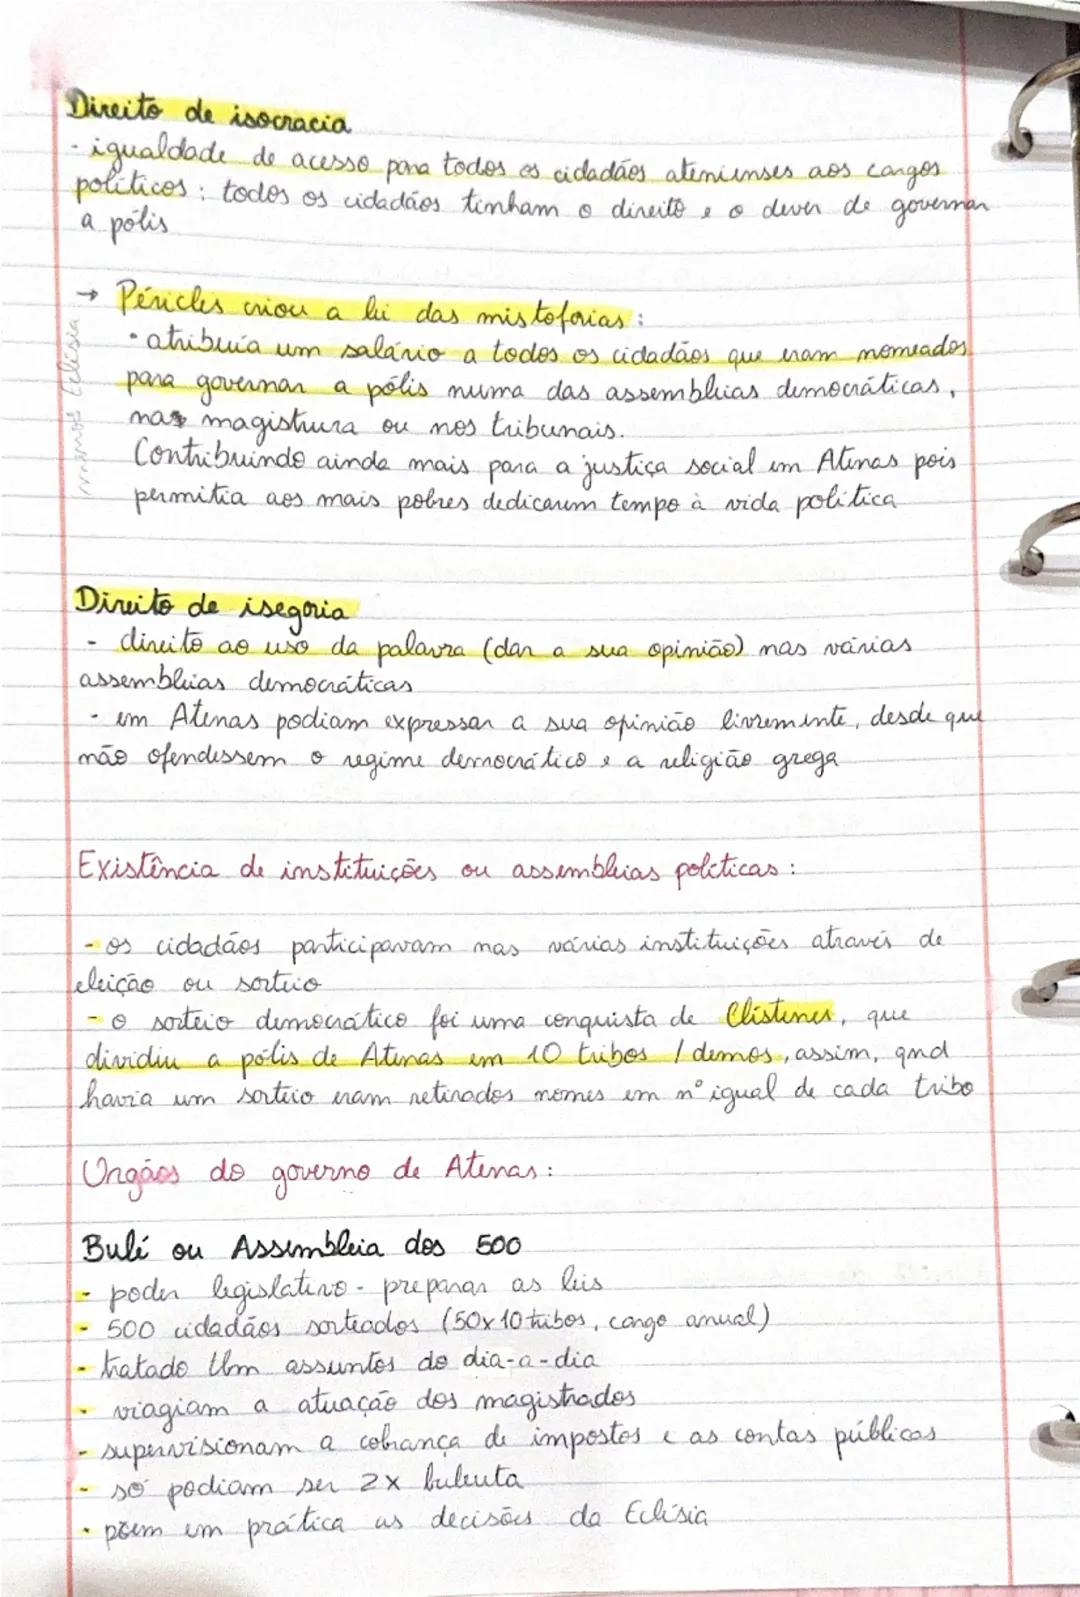 Direito de isocracia
- igualdade de acesso para todos os cidadãos atenienses aos cargos
políticos; todos os cidadãos tinham o direito e o dever de governar
a pólis
→ Péricles criou a lei das mistoforias:
• atribuía um salário a todos os cidadãos que eram nomeados
para governar a pólis numa das assembleias democráticas,
nas magistrura ou nos tribunais.
Contribuindo ainda mais para a justiça social em Atenas pois
permitia aos mais pobres dedicarem tempo à vida política
menos Eclésia
Direito de isegoria
- direito ao uso da palavra (dar a sua opinião) nas várias
assembleias democráticas
- em Atenas podiam expressar a sua opinião livremente, desde que
não ofendessem o regime democrático e a religião grega
Existência de instituições ou assembleias políticas:
- os cidadãos participavam nas várias instituições através de
eleição ou sorteio
- o sorteio democrático foi uma conquista de Clístenes, que
dividiu a pólis de Atenas em 10 tribos / demos, assim, qnd
havia um sorteio eram retirados nomes em nº igual de cada tribo
Orgãos do governo de Atenas:
Bulé ou Assembleia dos 500
- poder legislativo - preparar as leis
- 500 cidadãos sorteados (50x10 tribos, cargo anual)
- tratado assuntos do dia-a-dia
- viagiam a atuação dos magistrados
- supervisionam a cobrança de impostos e as contas públicas
- só podiam ser 2x buleuta
• põem em prática as decisões da Eclésia